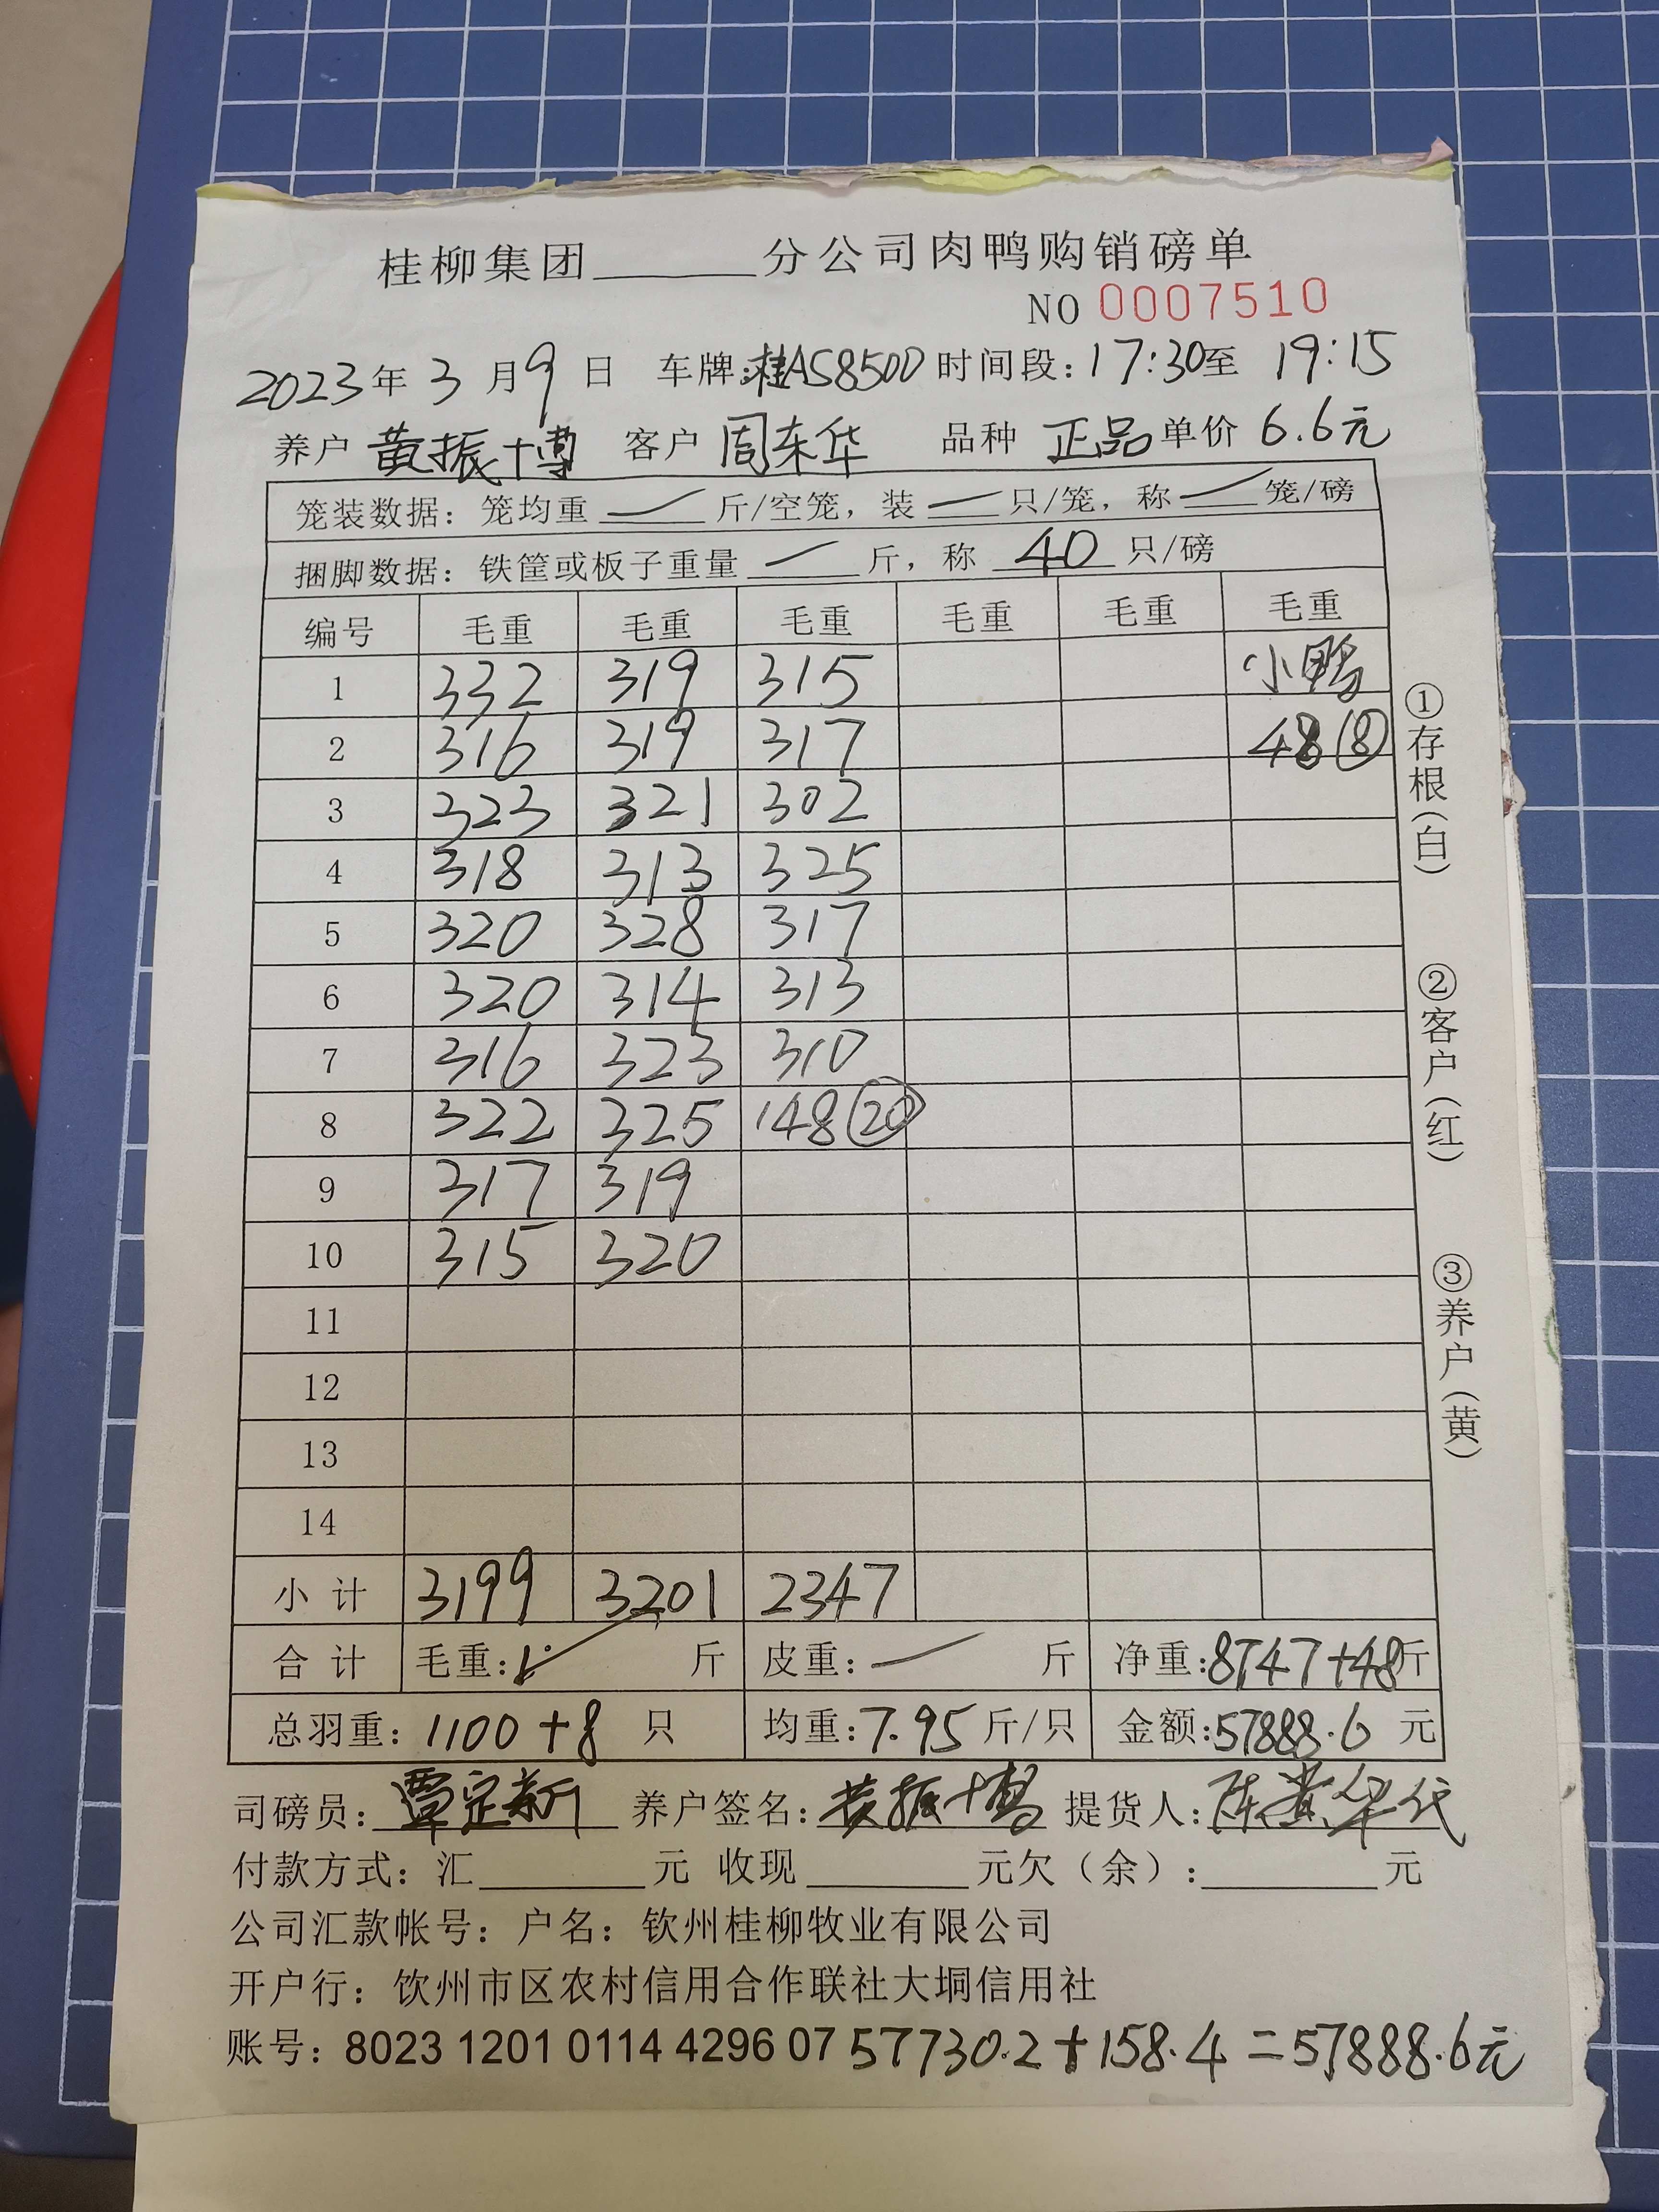 桂柳集团______分公司肉鸭购销磅单
NO 0007510
2023年 3 月 9 日 车牌:桂AS850D 时间段: 17:30至 19:15
养户 黄振博 客户 周东华 品种 正品 单价 6.6元
笼装数据: 笼均重 — 斤/空笼, 装 — 只/笼, 称 — 笼/磅
捆脚数据: 铁筐或板子重量 — 斤, 称 40 只/磅
编号 毛重 毛重 毛重 毛重 毛重 毛重
1 332 319 315 小鸭
2 316 319 317 48⑧
3 323 321 302
4 318 313 325
5 320 328 317
6 320 314 313
7 316 323 310
8 322 325 148⑳
9 317 319
10 315 320
11
12
13
14
小计 3199 3201 2347
合计 毛重: 斤 皮重: — 斤 净重:8747+48斤
总羽重: 1100+8 只 均重:7.95斤/只 金额:57888.6 元
司磅员: 覃定新 养户签名: 黄振博 提货人:
付款方式: 汇______元 收现______元欠(余):______元
公司汇款帐号: 户名: 钦州桂柳牧业有限公司
开户行: 钦州市区农村信用合作联社大垌信用社
账号: 8023 1201 0114 4296 07 57730.2+158.4=57888.6元
①存根(白)
②客户(红)
③养户(黄)